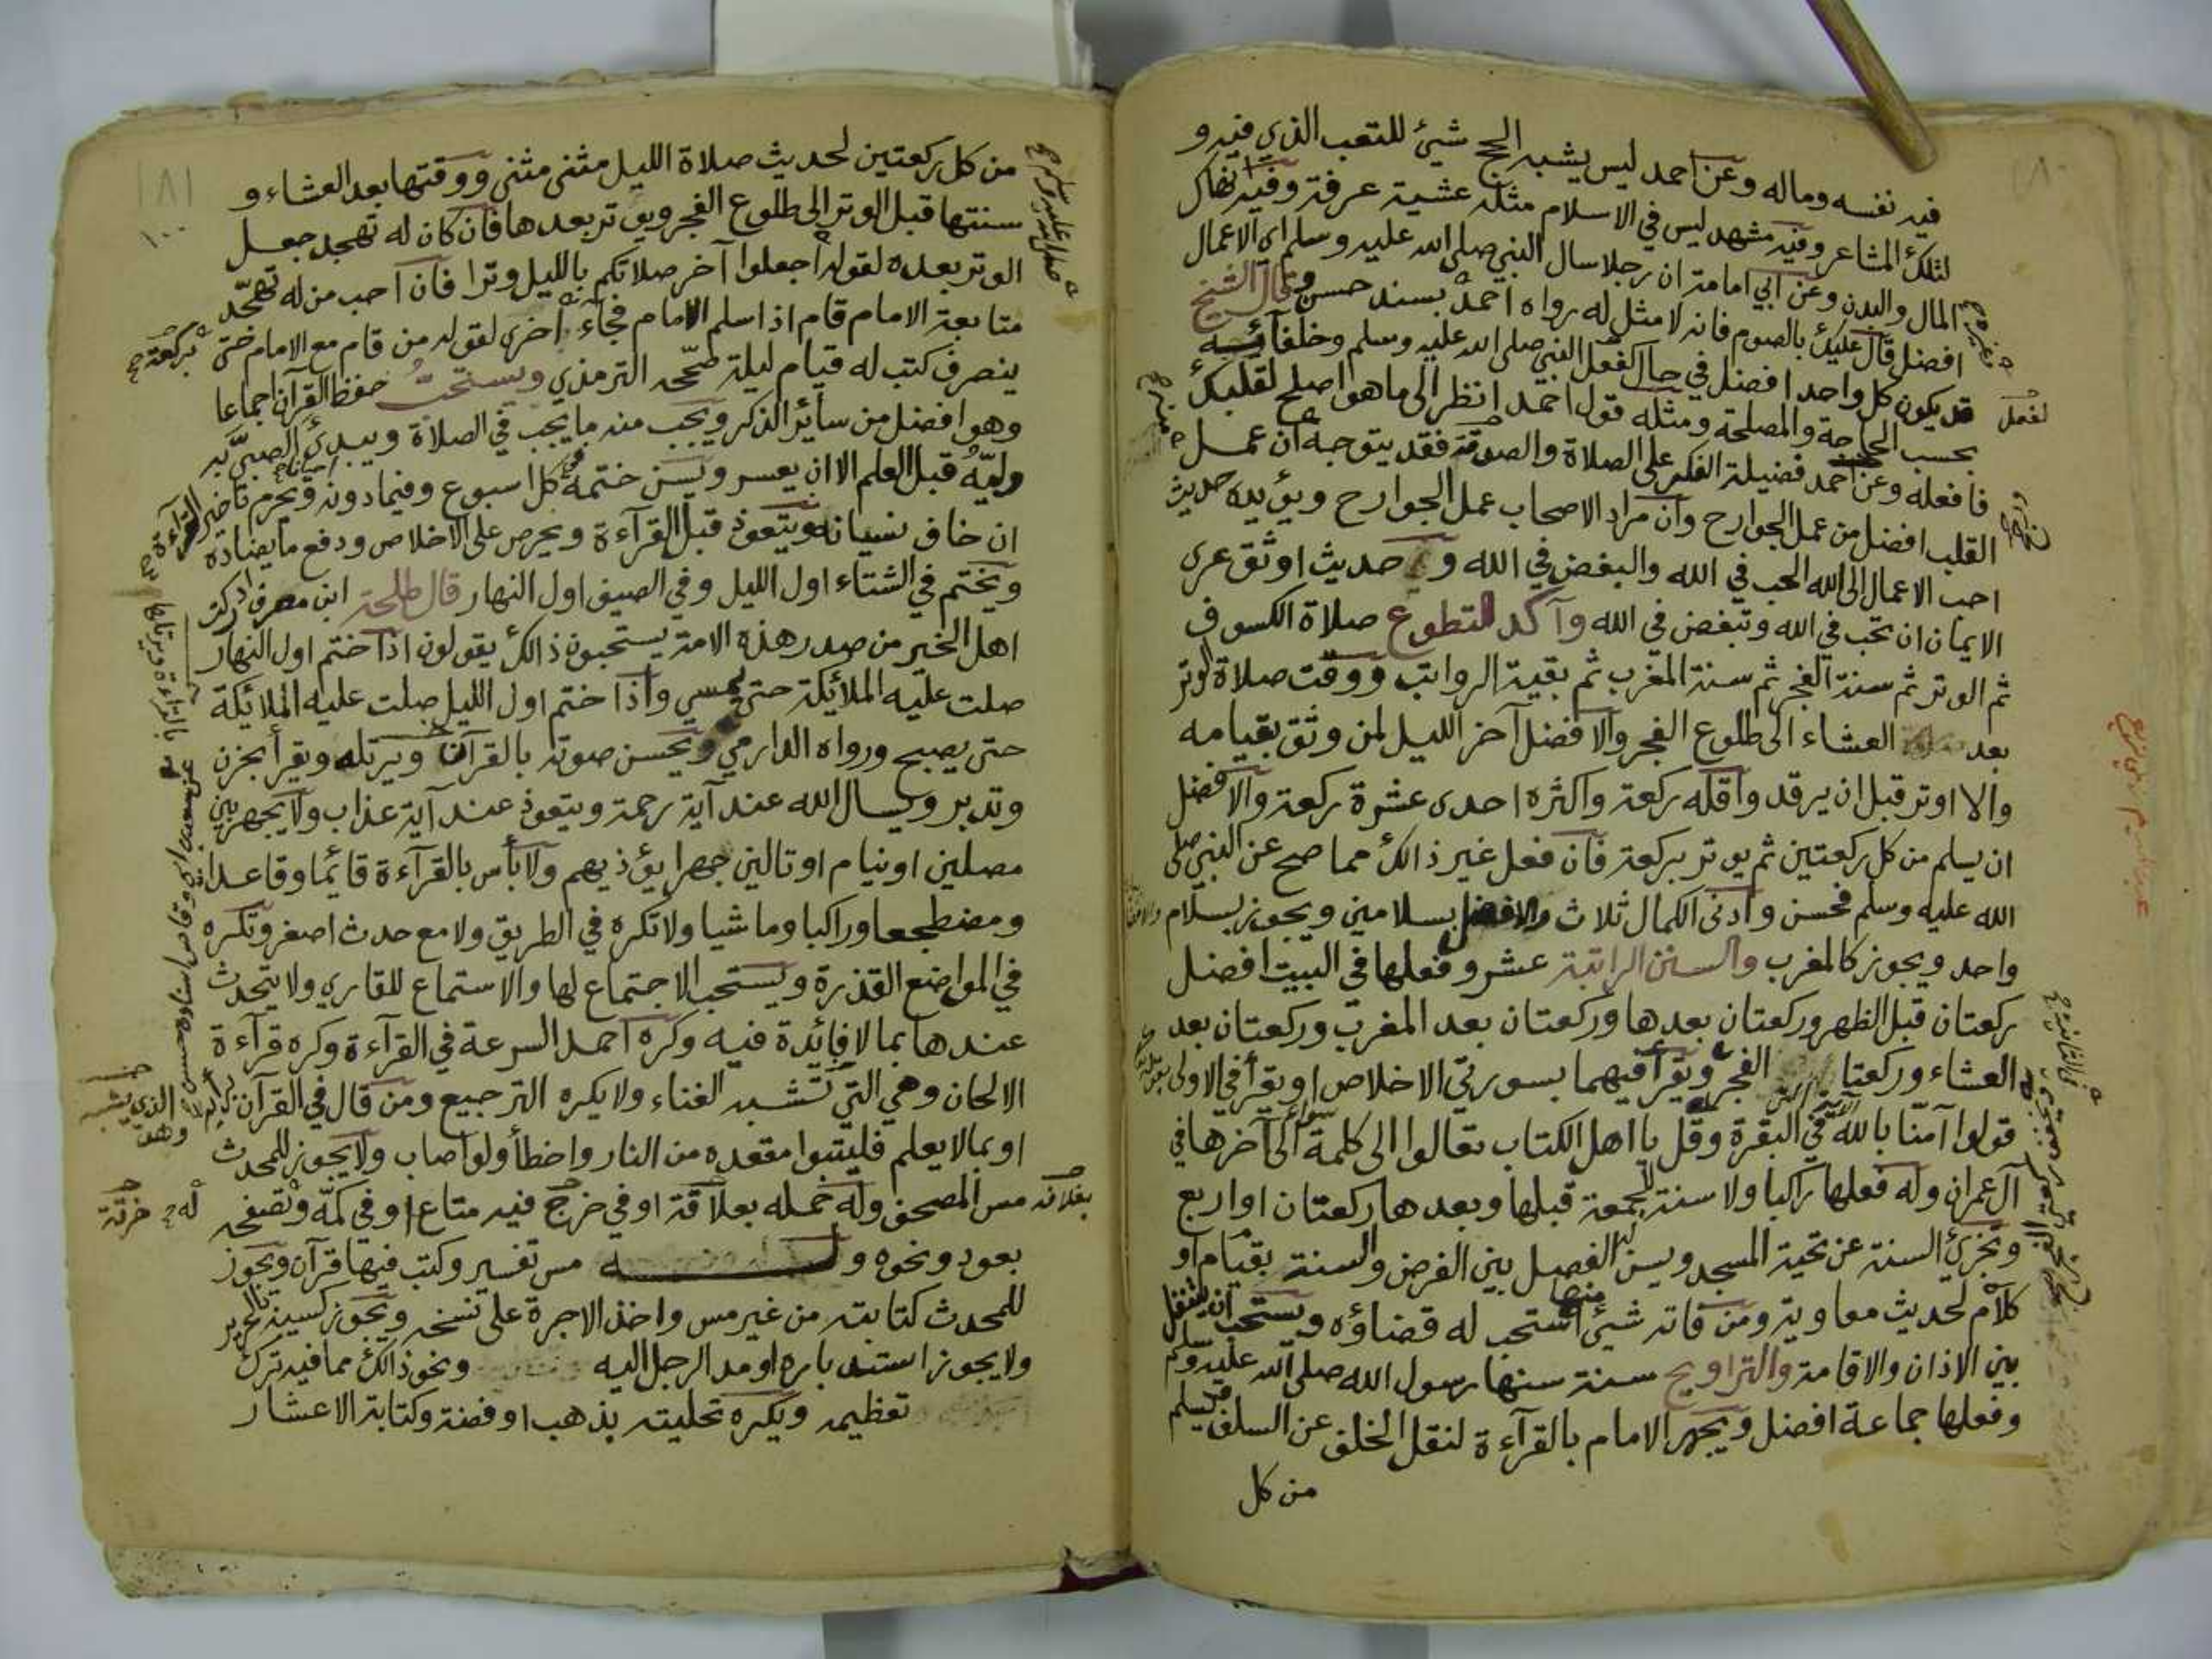 ١٨٠
فيه نفسه وماله وعن احمد ليس يشبه الحج شيئ للتعب الذي فيه و
لتلك المشاعر وفيه مشهد ليس في الاسلام مثله عشية عرفة وفيه انهاك
المال والبدن وعن ابي امامة ان رجلا سال النبي صلى الله عليه وسلم اي الاعمال
افضل قال عليك بالصوم فانه لا مثل له رواه احمد بسند حسن وقال الشيخ
قد يكون كل واحد افضل في حال كفعل النبي صلى الله عليه وسلم وخلفائه
بحسب الحاجة والمصلحة ومثله قول احمد انظر الى ما هو اصلح لقلبك
فافعله وعن احمد فضيلة الفكر على الصلاة والصدقة فقد يتوجه ان عمل
القلب افضل من عمل الجوارح وان مراد الاصحاب عمل الجوارح ويؤيده حديث
احب الاعمال الى الله الحب في الله والبغض في الله و حديث اوثق عرى
الايمان ان تحب في الله وتبغض في الله وآكد التطوع صلاة الكسوف
ثم الوتر ثم سنة الفجر ثم سنة المغرب ثم بقية الرواتب ووقت صلاة الوتر
بعد العشاء الى طلوع الفجر والافضل آخر الليل لمن وثق بقيامه
والا اوتر قبل ان يرقد واقله ركعة واكثره احدى عشرة ركعة والافضل
ان يسلم من كل ركعتين ثم يوتر بركعة فان فعل غير ذالك مما صح عن النبي صلى
الله عليه وسلم فحسن وادنى الكمال ثلاث والافضل بسلامين ويجوز بسلام
واحد ويجوز كالمغرب والسنن الراتبة عشر وفعلها في البيت افضل
ركعتان قبل الظهر وركعتان بعدها وركعتان بعد المغرب وركعتان بعد
العشاء وركعتا الفجر ويقرأ فيهما بسورتي الاخلاص او يقرأ في الاولى
قولوا آمنا بالله الآية في البقرة وقل يا اهل الكتاب تعالوا الى كلمة سواء الى آخرها في
آل عمران وله فعلها راكبا ولا سنة للجمعة قبلها وبعدها ركعتان او اربع
وتجزئ السنة عن تحية المسجد ويسن له الفصل بين الفرض والسنة بقيام او
كلام لحديث معاوية ومن فاته شيئ منها استحب له قضاؤه ويستحب ان يتنفل
بين الاذان والاقامة والتراويح سنة سنها رسول الله صلى الله عليه وسلم
وفعلها جماعة افضل ويجهر الامام بالقرآءة لنقل الخلف عن السلف فيسلم
من كل
١٨١
١٠٠
من كل ركعتين لحديث صلاة الليل مثنى مثنى ووقتها بعد العشاء و
سنتها قبل الوتر الى طلوع الفجر ويوتر بعدها فان كان له تهجد جعل
الوتر بعده لقوله اجعلوا آخر صلاتكم بالليل وترا فان احب من له تهجد
متابعة الامام قام اذا سلم الامام فجاء اخرى لقوله من قام مع الامام حتى
بركعة
ينصرف كتب له قيام ليلة صححه الترمذي ويستحب حفظ القرآن اجماعا
وهو افضل من سائر الذكر ويجب منه ما يجب في الصلاة ويبدئ الصبي به
وليه قبل العلم الا ان يعسر ويسن ختمه في كل اسبوع وفيما دونه احيانا ويحرم تاخير القرآءة
ان خاف نسيانه ويتعوذ قبل القرآءة ويحرص على الاخلاص ودفع ما يضاده
ويختم في الشتاء اول الليل وفي الصيف اول النهار قال طلحة ابن مصرف ادركت
اهل الخير من صدر هذه الامة يستحبون ذالك يقولون اذا ختم اول النهار
صلت عليه الملائكة حتى يمسي واذا ختم اول الليل صلت عليه الملائكة
حتى يصبح ورواه الدارمي ويحسن صوته بالقرآن ويرتله ويقرأ بحزن
وتدبر ويسال الله عند آية رحمة ويتعوذ عند آية عذاب ولا يجهر بين
مصلين او نيام او تالين جهرا يؤذيهم ولا بأس بالقرآءة قائما وقاعدا
ومضطجعا وراكبا وماشيا ولا تكره في الطريق ولا مع حدث اصغر وتكره
في المواضع القذرة ويستحب الاجتماع لها والاستماع للقاري ولا يتحدث
عندها بما لا فائدة فيه وكره احمد السرعة في القرآءة وكره قرآءة
الالحان وهي التي تشبه الغناء ولا يكره الترجيع ومن قال في القرآن برأيه
او بما لا يعلم فليتبوا مقعده من النار واخطأ ولو اصاب ولا يجوز للمحدث
مس المصحف وله حمله بعلاقة او في خرج فيه متاع او في كمه وتصفحه
خرقة
بعود ونحوه و مس تفسير وكتب فيها قرآن ويجوز
للمحدث كتابته من غير مس واخذ الاجرة على نسخه ويجوز كسيه بالحرير
ولا يجوز استدباره او مد الرجل اليه ونحو ذالك مما فيه ترك
تعظيمه ويكره تحليته بذهب او فضة وكتابة الاعشار